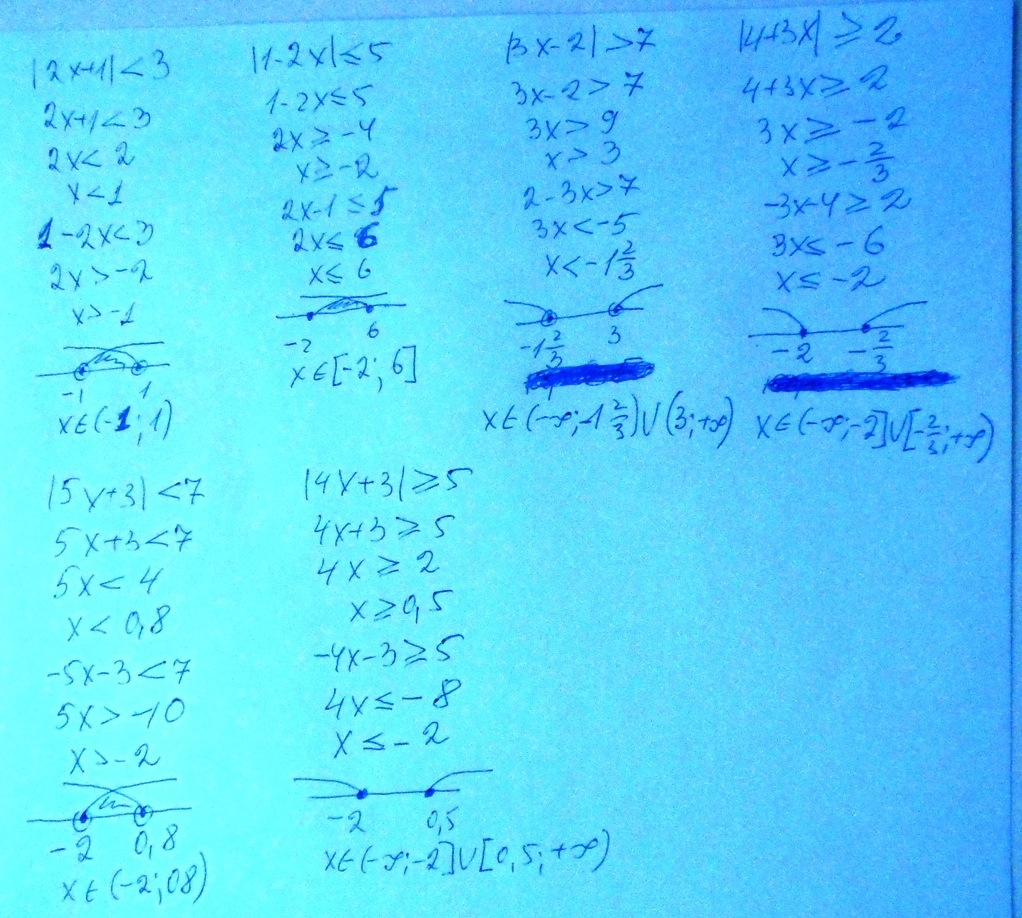 |2x+1|<3
2x+1<3
2x<2
x<1
1-2x<3
2x>-2
x>-1
-1 1
x∈(-1;1)
|1-2x|≤5
1-2x≤5
2x≥-4
x≥-2
2x-1≤5
2x≤6
x≤6
-2 6
x∈[-2;6]
|3x-2|>7
3x-2>7
3x>9
x>3
2-3x>7
3x<-5
x<-1 2/3
-1 2/3 3
x∈(-∞;-1 2/3)∪(3;+∞)
|4+3x|≥2
4+3x≥2
3x≥-2
x≥-2/3
-3x-4≥2
3x≤-6
x≤-2
-2 -2/3
x∈(-∞;-2]∪[-2/3;+∞)
|5x+3|<7
5x+3<7
5x<4
x<0,8
-5x-3<7
5x>-10
x>-2
-2 0,8
x∈(-2;08)
|4x+3|≥5
4x+3≥5
4x≥2
x≥0,5
-4x-3≥5
4x≤-8
x≤-2
-2 0,5
x∈(-∞;-2]∪[0,5;+∞)